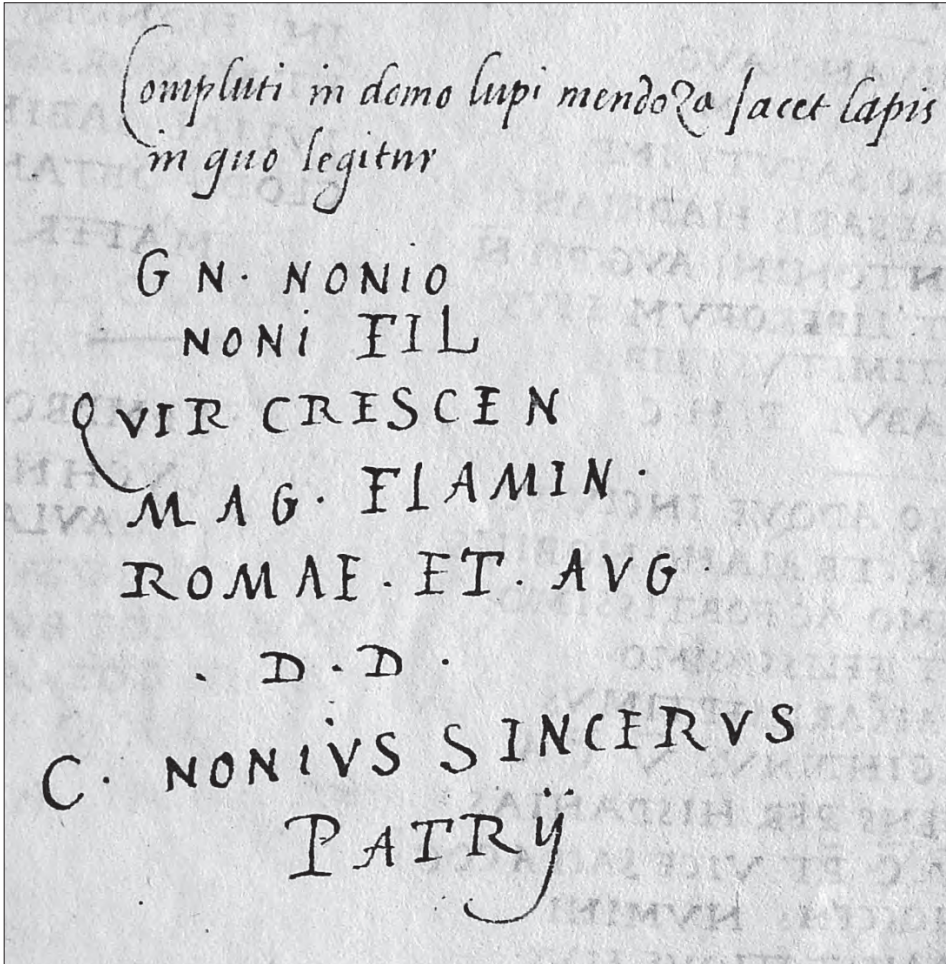 Compluti in domo lupi mendoza Jacet lapis
in quo legitur
GN. NONIO
NONI FIL
QVIR CRESCEN
MAG. FLAMIN.
ROMAE. ET. AVG.
. D. D.
C. NONIVS SINCERVS
PATRŸ